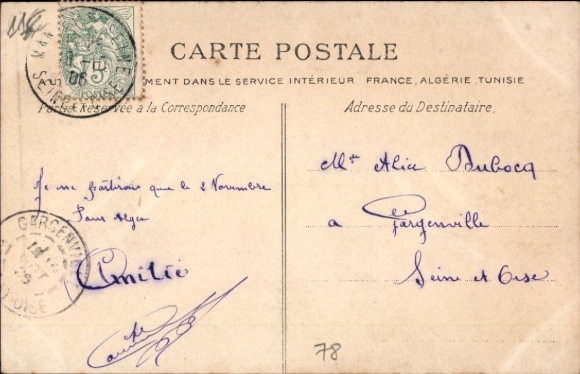 CARTE POSTALE
MENT DANS LE SERVICE INTÉRIEUR FRANCE, ALGÉRIE, TUNISIE
Partie Réservée à la Correspondance
Adresse du Destinataire.
Je ne partirais que le 2 Novembre
Pour Alger
Amitié
Mlle Alice Dubocq
a Gargenville
Seine et Oise
GARGENVILLE
78